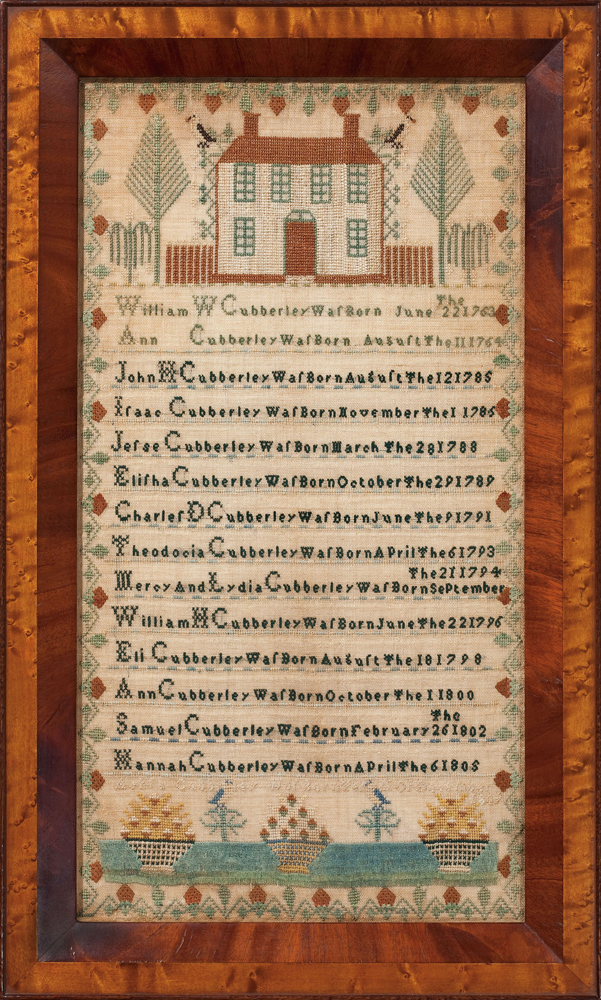 William W Cubberley Waſ Born June The 22 1763
Ann Cubberley Waſ Born Auguſt The 11 1764
John H Cubberley Waſ Born Auguſt The 12 1785
Iſaac Cubberley Waſ Born November The 1 1786
Jeſse Cubberley Waſ Born March The 28 1788
Eliſha Cubberley Waſ Born October The 29 1789
Charleſ D Cubberley Waſ Born June The 9 1791
Theodocia Cubberley Waſ Born April The 6 1793
Mercy And Lydia Cubberley Waſ Born September The 21 1794
William H Cubberley Waſ Born June The 22 1796
Eli Cubberley Waſ Born Auguſt The 18 1798
Ann Cubberley Waſ Born October The 1 1800
Samuel Cubberley Waſ Born February The 26 1802
Hannah Cubberley Waſ Born April The 6 1805